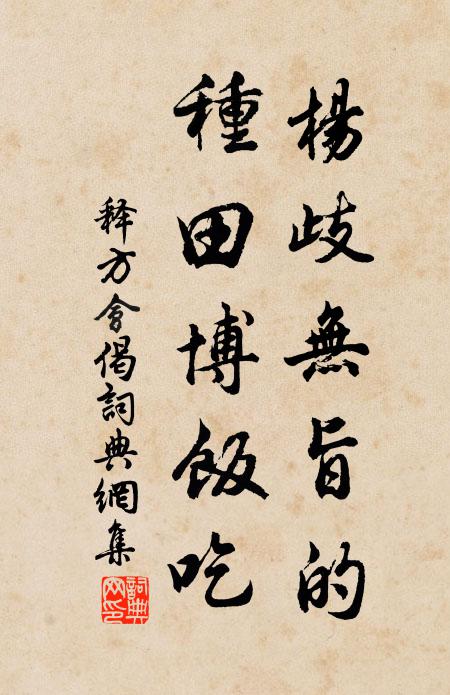 楊歧無旨的
種田博飯吃
释方會偈詞典網集
詞典網印